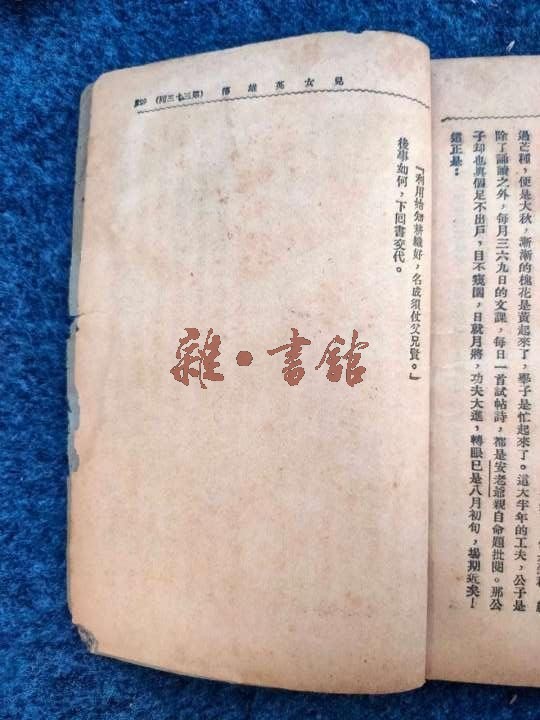 過芒種，便是大秋，漸漸的槐花是黃起來了，舉子是忙起來了。這大半年的工夫，公子是
除了誦讀之外，每月三六九日的文課，每日一首試帖詩，都是安老爺親自命題批閱。那公
子却也眞個足不出戶，目不窺園，日就月將，功夫大進，轉眼已是八月初旬，場期近矣！
這正是：
兒女英雄傳（第三十三回）
『利用始知耕織好，名成須仗父兄賢。』
後事如何，下回書交代。
雜·書館